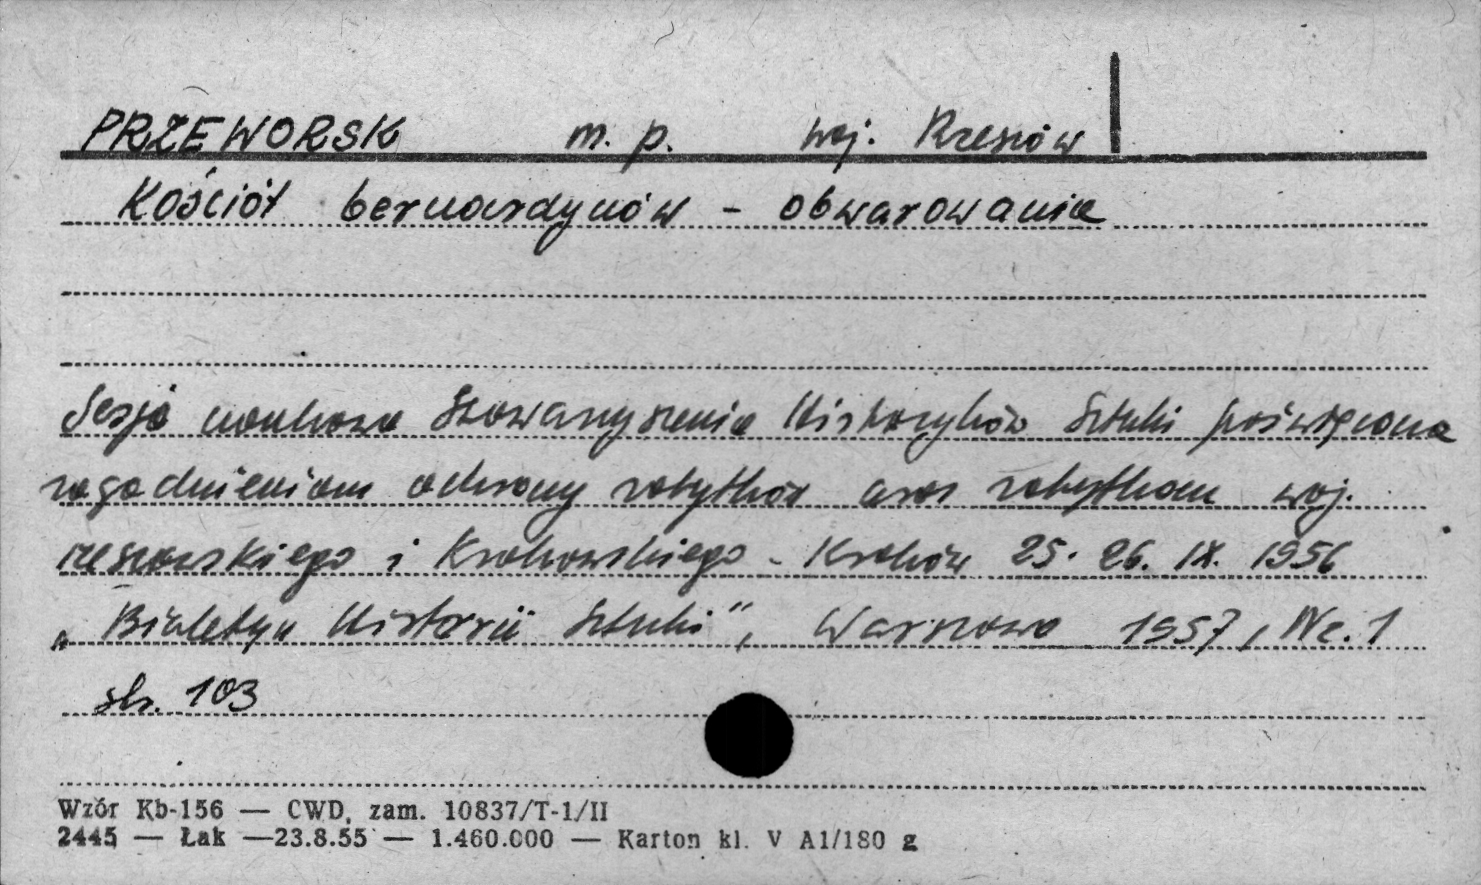 PRZEWORSK m. p. woj. Rzeszów
Kościół bernardynów - obwarowania
Sesja naukowa Stowarzyszenia Historyków Sztuki poświęcona
zagadnieniom ochrony zabytków oraz zabytkom woj.
rzeszowskiego i Krakowskiego - Kraków 25. 26. IX. 1956
„Biuletyn Historii Sztuki", Warszawa 1957, Nr. 1
str. 103
Wzór Kb-156 — CWD, zam. 10837/T-1/II
2445 — Łak —23.8.55 — 1.460.000 — Karton kl. V A1/180 g